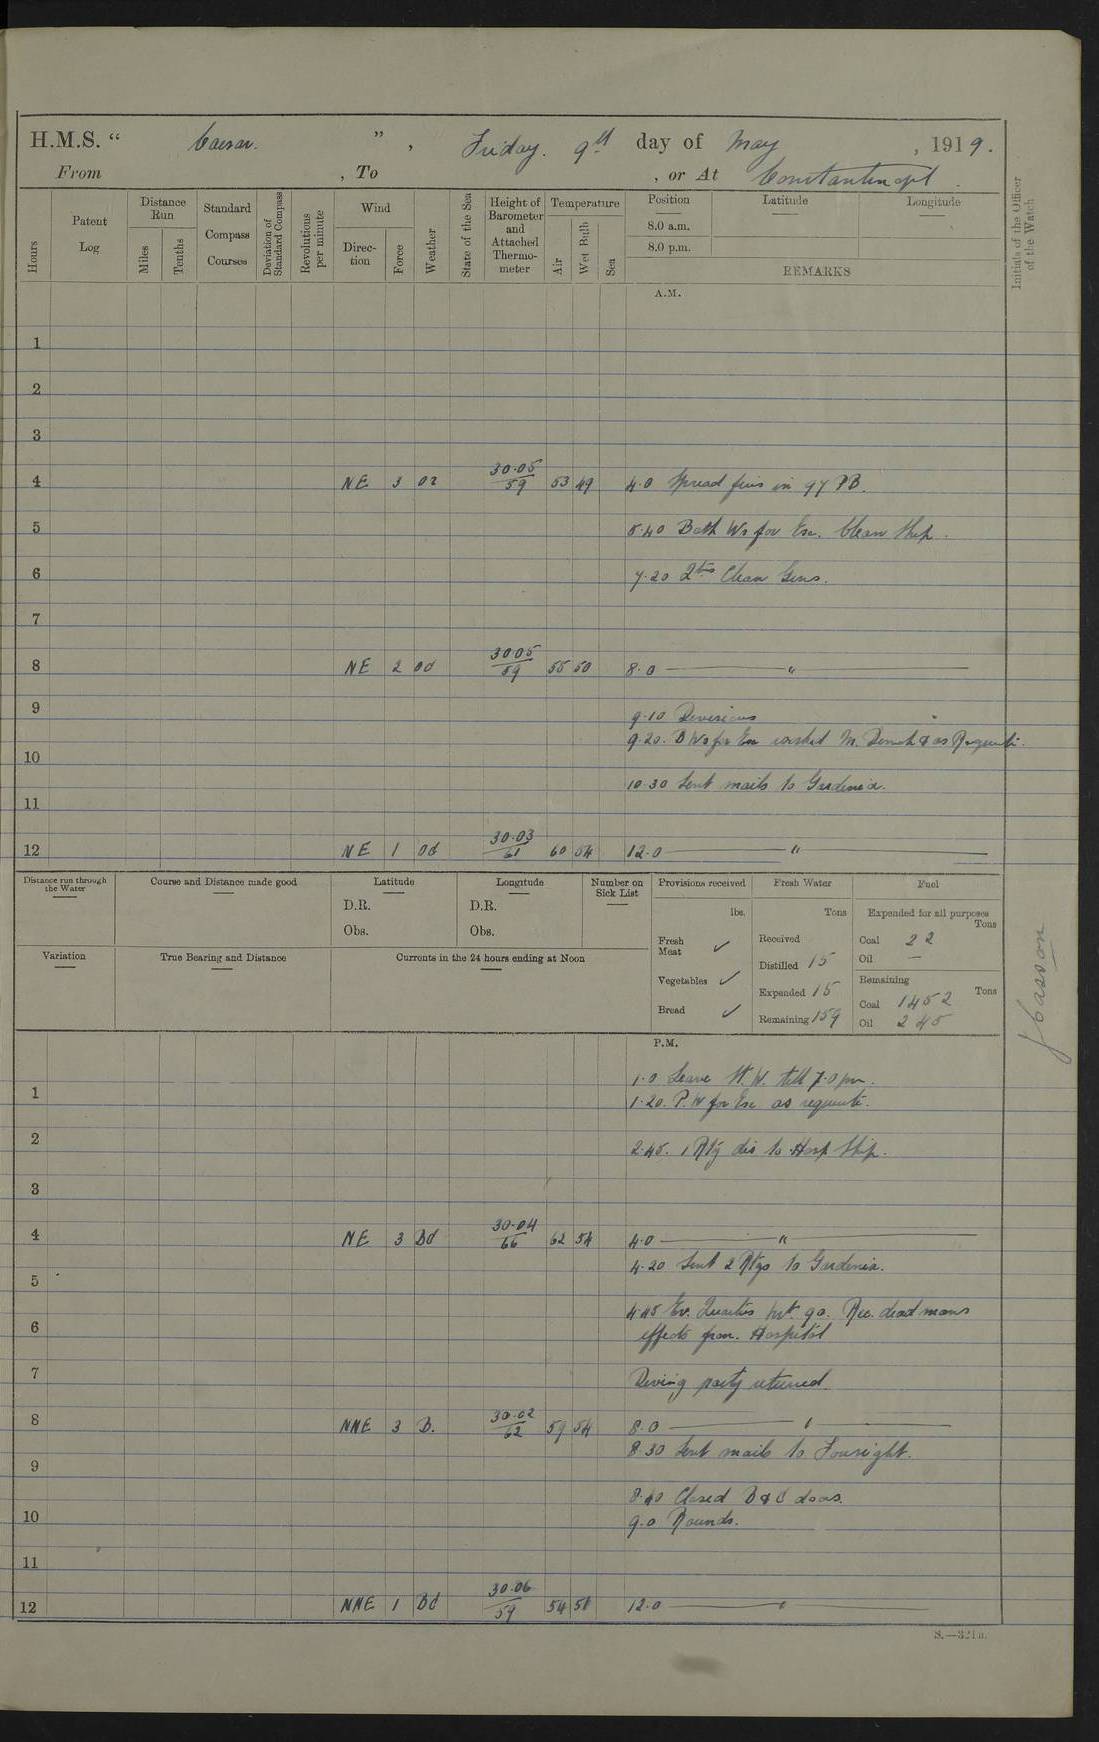 H.M.S. “ Caesar. ” , Friday. 9th day of May , 1919.
From , To , or At Constantinopl .
Hours
Patent Log
Distance Run
Miles
Tenths
Standard Compass Courses
Deviation of Standard Compass
Revolutions per minute
Wind
Direc-tion
Force
Weather
State of the Sea
Height of Barometer and Attached Thermo-meter
Temperature
Air
Wet Bulb
Sea
Position
8.0 a.m.
8.0 p.m.
Latitude
Longitude
REMARKS
Initials of the Officer of the Watch
A.M.
1
2
3
4 NE 3 30.05/59 53 49 4.0 Spread fires in 97 PB.
5 5.40 Both Ws for Exc. Clean Ship.
6 7.20 Clean Guns.
7
8 NE 2 Od 30.05/59 55 50 8.0 — " —
9 9.10 Divisions
9.20.
10
10.30 Sent mails to Gardenia.
11
12 NE 1 Od 30.03/61 60 54 12.0 — " —
Distance run through the Water
Course and Distance made good
Latitude
D.R.
Obs.
Longitude
D.R.
Obs.
Number on Sick List
Provisions received
lbs.
Fresh Meat ✓
Vegetables ✓
Bread ✓
Fresh Water
Tons
Received
Distilled 15
Expended 15
Remaining 159
Fuel
Expended for all purposes
Tons
Coal 22
Oil —
Remaining
Tons
Coal 1452
Oil 245
Variation
True Bearing and Distance
Currents in the 24 hours ending at Noon
P.M.
1.0 Leave W. till 7.0 pm.
1 1.20. P.W for Exc as requisite.
2 2.45. 1 Rtg dis to Hosp Ship.
3
4 NE 3 Bd 30.04/66 62 54 4.0 — " —
4.20 Sent 2 Rtgs to Gardenia.
5
4.45 Ev. Quarters Rec. dead mans
6 effects from Hospital
7 Diving party returned.
8 NNE 3 B. 30.02/62 59 54 8.0 — " —
8.30 Sent mails to Foresight.
9
8.40 Closed B & C doors.
10 9.0 Rounds.
11
12 NNE 1 Bd 30.06/59 54 12.0 — " —
S.—321a.